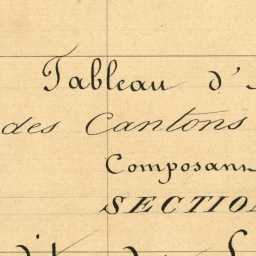 Tableau d'
des Cantons
Composan
SECTIO